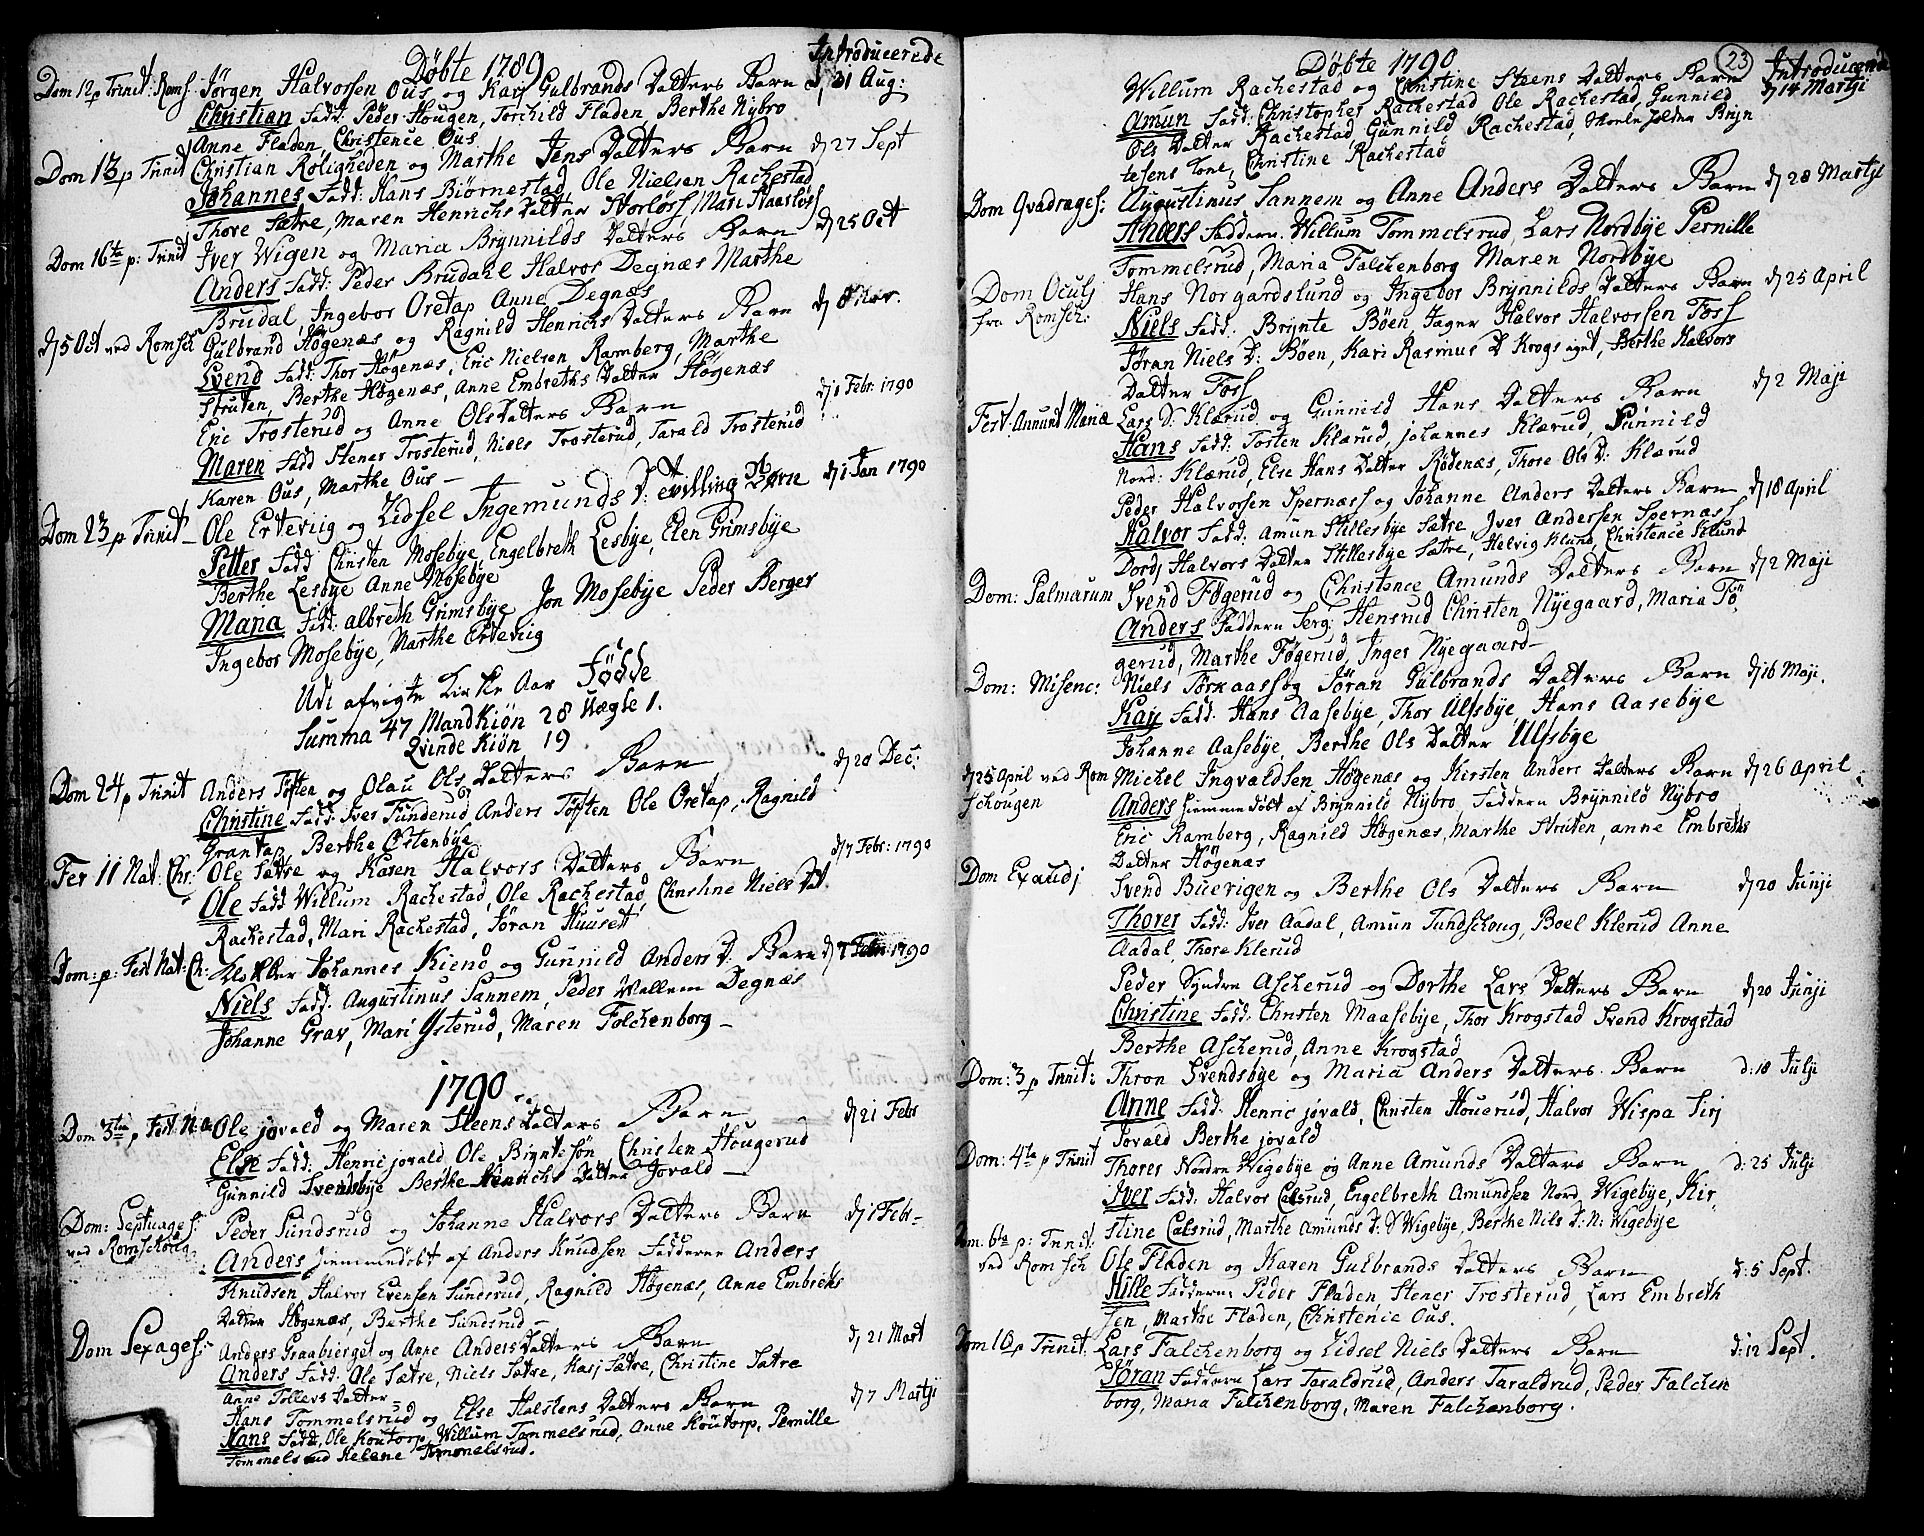 Døbte 1789
Introducerede
Dom 12 p Trinit: Roms. Jørgen Halvorssen Ous og Kari Gulbrands Datters Barn d 31 Aug:
Christian Fadd: Peder Hougen, Torchild Fladen, Berthe Nybro
Anne Fladen, Christence Ous
Dom 13 p Trinit Christian Roligheden og Marthe Jens Datters Barn dj 27 Sept
Johannes Fadd: Hans Biørnestad, Ole Nielsen Rachestad
Thore Sætre, Maren Henrichs Datter Storløss, Mari Haasløss
Dom 16te p: Trinit Iver Wigen og Maria Brynnilds Datters Barn dj 25 Oct
Anders Fadd: Peder Brudahl Halvor Degnæs Marthe
Brudal, Ingebor Oretap Anne Degnæs
dj 5 Oct ved Romsch Gulbrand Høgenæs og Ragnild Henrichs Datters Barn dj 8 Nov.
Svend Fadd: Thor Høgenæs, Eric Nielsen Ramberg, Marthe
Struten, Berthe Høgenæs, Anne Embreths Datter Høgenæs
Eric Trosterud og Anne Ols Datters Barn dj 1 Febr: 1790
Maren Fadd Stener Trosterud, Niels Trosterud, Tarald Trosterud
Karen Ous, Marthe Ous —
Dom 23 p Trinit — Ole Erteviig og Lidsel Ingemunds D: tvilling Børn dj 1 Jan 1790
Petter Fadd Christen Mosebye, Engelbreth Lesbye, Elen Grimsbye
Berthe Lesbye Anne Mosebye
Maria Fadd: albreth Grimsbye Jon Mosebye Peder Berger
Ingebor Mosebye, Marthe Erteviig
Udi afvigte Kirke Aar Fødde
Summa 47 Mandkiøn 28 Uægte 1.
Qvinde Kiøn 19
Dom 24 p Trinit Anders Toften og Olau Ols Datters Barn dj 20 Dec:
Christine Fadd: Iver Funderud, Anders Toften Ole Oretap, Ragnild
Grantap Berthe Ostenbye
Fer II Nat. Chr: Ole Sætre og Karen Halvors Datters Barn dj 7 Febr: 1790
Ole Fadd Willum Rachestad, Ole Rachestad, Christine Niels Dat.
Rachestad, Mari Rachestad, Jøran Huuset
Dom: p: Fest Nat: Ch: Klokker Johannes Kiend og Gunnild Anders D: Barn dj 7 Febr 1790
Niels Fadd: Augustinus Sannem, Peder Wallem Degnæs
Johanne Grav, Mari Ysterud, Maren Falchenborg —
1790
Dom 3tia p Fest. Nat Ole jovald og Maren Steens Datters Barn dj 21 Febr
Else Fadd: Henric jovald Ole Bryntesøn Christen Hougerud
Gunnild Svendsbye Berthe Henrichs Datter Jovald —
Dom: Septuages: Peder Sundsrud og Johanne Halvors Datters Barn dj 1 Febr —
ved Romschoug
Anders hiemmedøbt af Anders Knudsen Fadderne Anders
Knudsen, Halvor Evensen Sundsrud, Ragnild Høgenæs, Anne Embreths
Datter Høgenæs, Berthe Sundsrud —
Dom Sexages: Anders Graabierget og Anne Anders Datters Barn dj 21 Mart
Anders Fadd: Ole Sætre, Niels Sætre, Karj Sætre, Christine Sætre
Anne Tollevs Datter
Hans Tommelsrud og Else Halstens Datters Barn dj 7 Martji
Hans Fadd, Ole Koutorp, Willum Tommelsrud, Anne Koutorp, Pernille
Tommelsrud Helene Tommelsrud.
Døbte 1790
23
Introducerede
Willum Rachestad og Christine Steens Datters Barn dj 14 Martji
Amun Fadd: Christopher Rachestad Ole Rachestad, Gunnild
Ols Datter Rachestad, Gunnild Rachestad, Bryn
tesens Tone, Christine Rachestad
Dom Qvadrages: Augustinus Sannem og Anne Anders Datters Barn dj 28 Martji
Anders Faddern. Willum Tommelsrud, Lars Nordbye Pernille
Tommelsrud, Maria Falchenborg Maren Nordbye
Dom Oculj Hans Norgardslund og Ingebor Brynnilds Datters Barn dj 25 April
fra Romsch:
Niels Fadd: Brynte Bøen, Jager Halvor Halvorssen Foss
Jøran Niels D: Bøen, Kari Rasmus D Krogs eget, Berthe Halvors
Datter Foss
Fest: Anund Mariæ Lars S. Klærud og Gunnild Hans Datters Barn dj 2 Maji
Hans Fadd: Tosten Klærud, Johannes Klærud, Gunnild
Nord: Klærud, Else Hans Datter Rødenæs, Thore Ols D: Klærud
Peder Halvorsen Spernæss og Johanne Anders Datters Barn dj 18 April
Halvor Fadd: Amun Stillesbye Sætre, Iver Andersen Spernæss
Dordj Halvors Datter Stillesbye Sætre, Helvig Klund, Christence Klund
Dom: Palmarum Svend Føgerud og Christence Amunds Datters Barn dj 2 Maji
Anders Faddern Serg: Hensrud Christen Nyegaard, Maria Fø
gerud, Marthe Føgerud, Inger Nyegaard —
Dom: Misenc: Niels Torkaas og Jøran Gulbrands Datters Barn dj 16 Maji.
Kay Fadd: Hans Aasebye, Thor Ulfsbye Hans Aasebye
Johanne Aasebye Berthe Ols Datter Ulfsbye
dj 25 April ved Rom Michel Ingvaldsen Høgenæs og Kirsten Anders Datters Barn dj 26 April
schougen
Anders hiemmedøbt af Brynnild Nybro Faddern Brynnild Nybro
Eric Ramberg, Ragnild Høgenæs, Marthe Struten, anne Embreths
Datter Høgenæs
Dom Exaudj Svend Buervigen og Berthe Ols Datters Barn dj 20 Junji
Thorer Fadd: Iver Aadal, Amun Tundschoug, Boel Klerud Anne
Aadal, Thore Klerud
Peder Syndre Ascherud og Dorthe Lars Datters Barn dj 20 Junji
Christine Fadd. Christen Maasebye, Thor Krogstad Svend Krogstad
Berthe Ascherud, Anne Krogstad
Dom: 3 p Trinit: Thron Svendsbye og Maria Anders Datters Barn d: 18 Julji
Anne Fadd: Henric jovald, Christen Houerud, Halvor Wispa Sirj
Jovald Berthe jovald
Dom: 4ta p Trinit Thorer Nordre Wigebye og Anne Amunds Datters Barn d: 25 Julji
Iver Fadd: Halvor Calsrud, Engelbreth Amundsen Nord, Wigebye, Kir,
stine Calsrud, Marthe Amunds D: S Wigebye, Berthe Nils D: N: Wigebye
Dom. 6ta p: Trinit: Ole Fladen og Karen Gulbrands Datters Barn d: 5 Sept.
ved Romsch
Hille Fadderne Peder Fladen Stener Trosterud, Lars Embreth
sen, Marthe Fladen, Christence Ous.
Dom 10 p Trinit: Lars Falchenborg og Lidsel Niels Datters Barn d: 12 Sept.
Jøran Faddern Lars Taraldrud, Anders Taraldrud, Peder Falchen
borg, Maria Falchenborg, Maren Falchenborg.